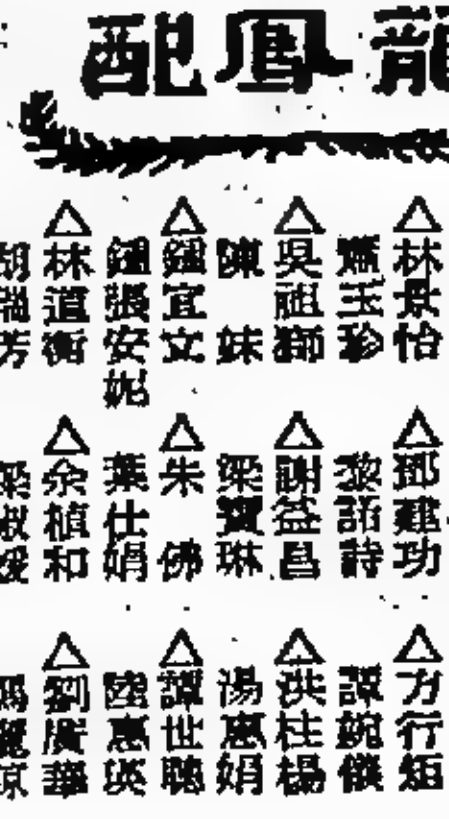 龍鳳配
△林景怡
玉珍
△吳祖獅
陳妹
△鍾宜文
鍾張安妮
△林道衡
胡瑞芳
△鄧建功
黎詒詩
△謝益昌
梁寶琳
△朱佛
葉仕娟
△余植和
梁淑媛
△方行烜
譚婉儀
△洪柱楊
湯惠娟
△譚世聰
陸惠英
△劉廣華
馮麗